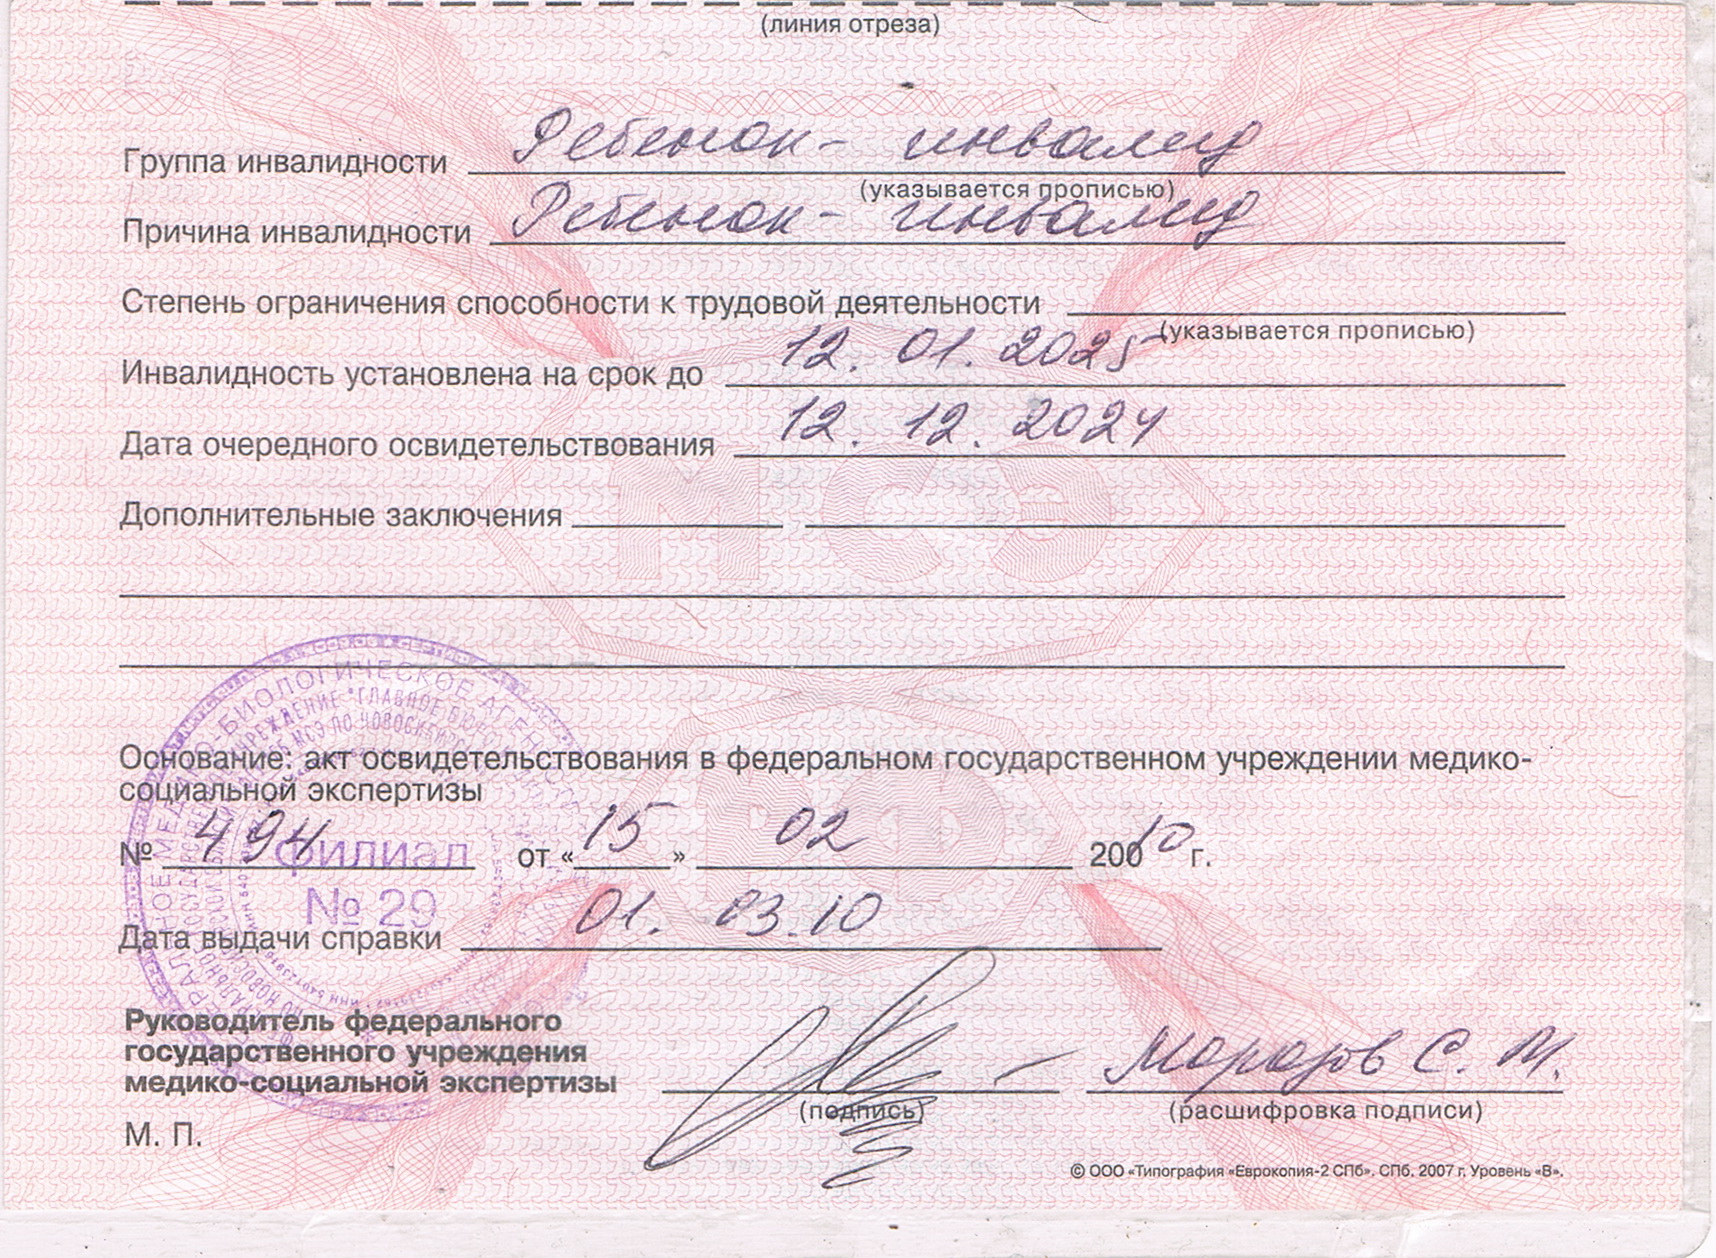 (линия отреза)
Группа инвалидности Ребенок - инвалид
(указывается прописью)
Причина инвалидности Ребенок - инвалид
Степень ограничения способности к трудовой деятельности
(указывается прописью)
Инвалидность установлена на срок до 12. 01. 2025
Дата очередного освидетельствования 12. 12. 2024
МСЭ
Дополнительные заключения
Основание: акт освидетельствования в федеральном государственном учреждении медико-
социальной экспертизы
РФ
№ 494 от «15» 02 20010 г.
филиал
№ 29
Дата выдачи справки 01. 03.10
Руководитель федерального
государственного учреждения
медико-социальной экспертизы Морозов С. М.
(подпись) (расшифровка подписи)
М. П.
© ООО «Типография «Еврокопия-2 СПб». СПб. 2007 г. Уровень «В».